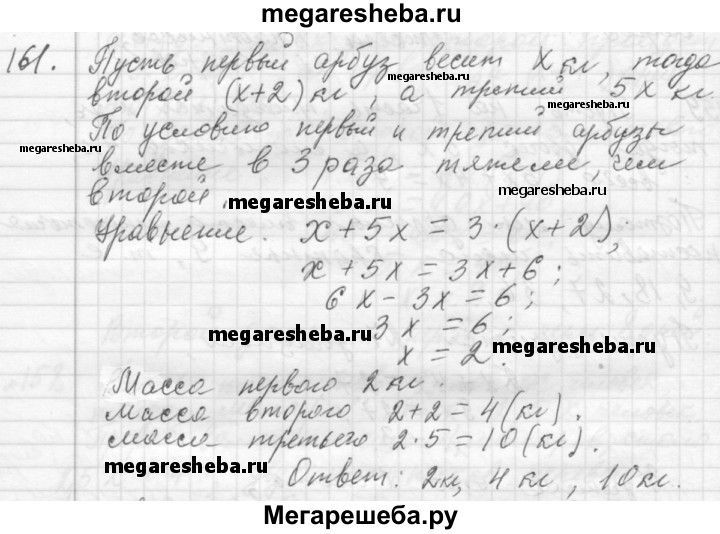 megaresheba.ru
161. Пусть первый арбуз весит x кг, тогда
megaresheba.ru
второй (x+2) кг, а третий 5x кг
megaresheba.ru
По условию первый и третий арбузы
megaresheba.ru
вместе в 3 раза тяжелее, чем
megaresheba.ru
второй.
megaresheba.ru
Уравнение. x + 5x = 3·(x+2);
x + 5x = 3x + 6;
6x - 3x = 6;
megaresheba.ru
3x = 6;
megaresheba.ru
x = 2.
Масса первого 2 кг.
Масса второго 2+2=4(кг).
масса третьего 2·5=10(кг).
megaresheba.ru
Ответ: 2кг, 4 кг, 10кг.
Мегарешеба.ру